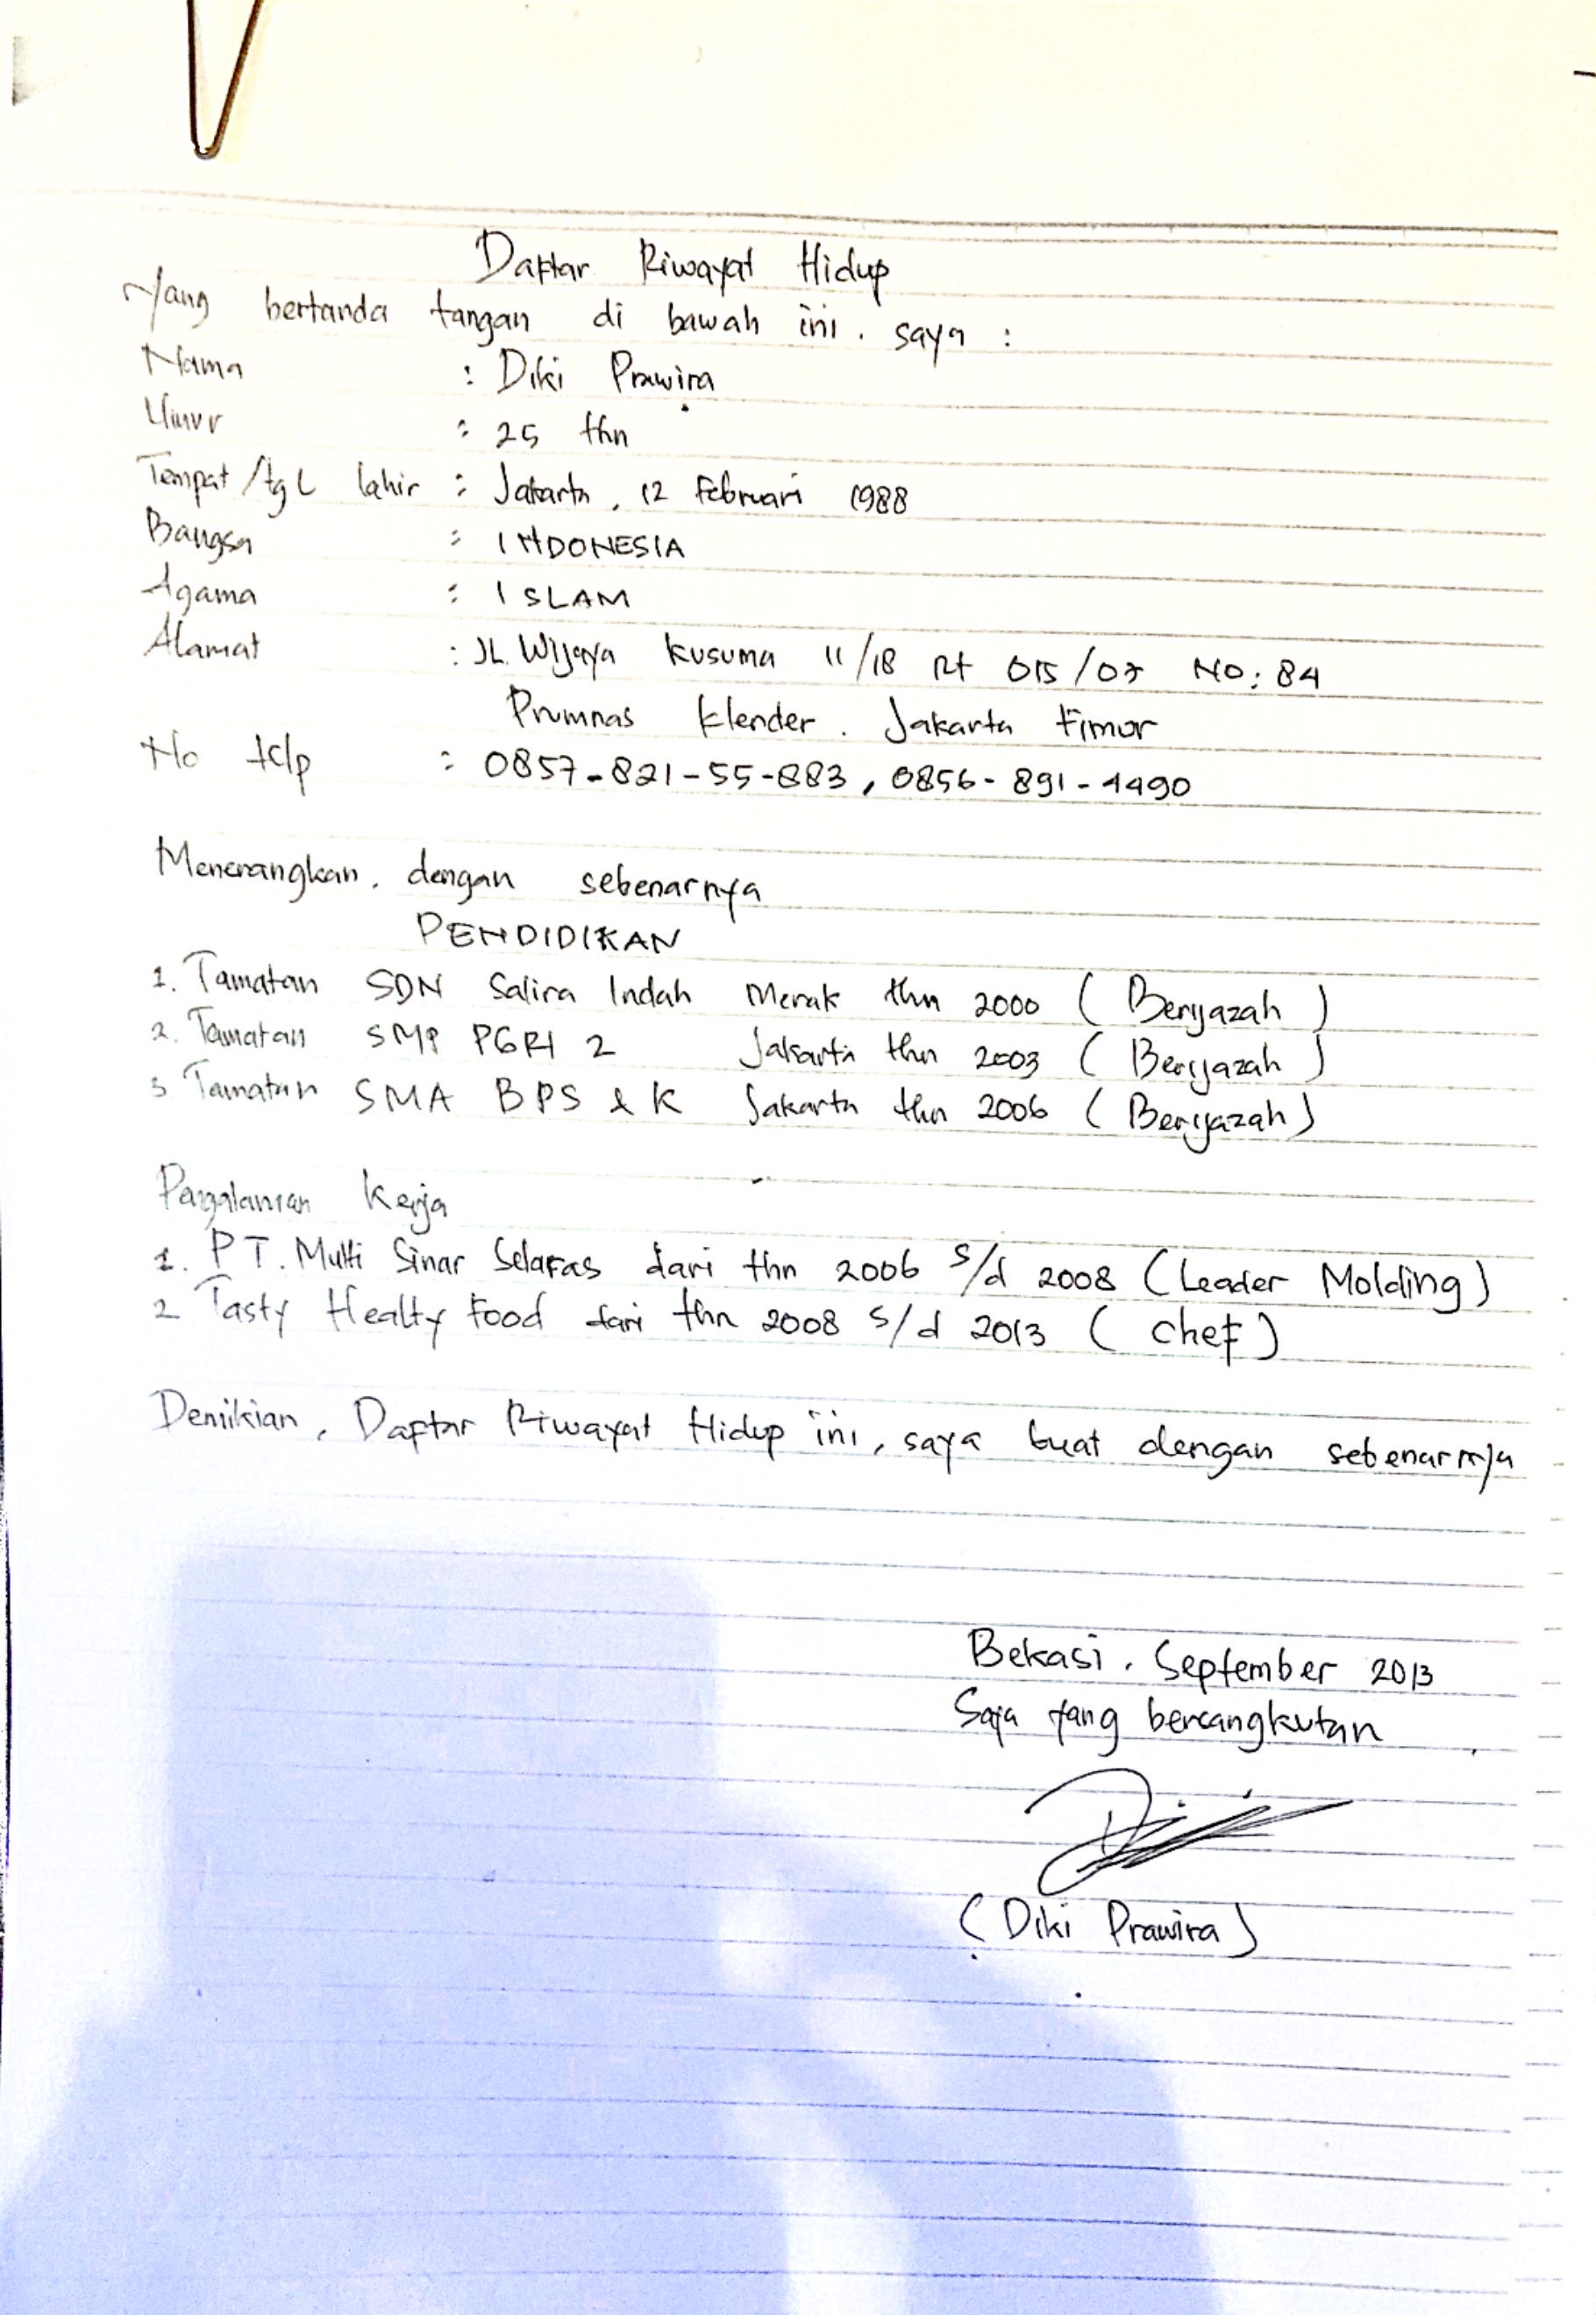 Daftar Riwayat Hidup
Yang bertanda tangan di bawah ini. saya :
Nama : Diki Prawira
Umur : 25 thn
Tempat/tgl lahir : Jakarta, 12 Februari 1988
Bangsa : INDONESIA
Agama : ISLAM
Alamat : JL. Wijaya Kusuma 11/18 Rt 015/07 NO: 84
Prumnas Klender. Jakarta timur
No telp : 0857-821-55-883, 0856-891-4490
Menerangkan. dengan sebenarnya
PENDIDIKAN
1. Tamatan SDN Salira Indah Merak thn 2000 ( Berijazah )
2. Tamatan SMP PGRI 2 Jakarta thn 2003 ( Berijazah )
3 Tamatan SMA BPS & K Jakarta thn 2006 ( Berijazah )
Pangalaman Kerja
1. PT. Multi Sinar Selaras dari thn 2006 s/d 2008 (Leader Molding)
2 Tasty Healty Food dari thn 2008 s/d 2013 ( chef )
Demikian, Daftar Riwayat Hidup ini, saya buat dengan sebenarnya
Bekasi, September 2013
Saya yang bersangkutan
(Diki Prawira)